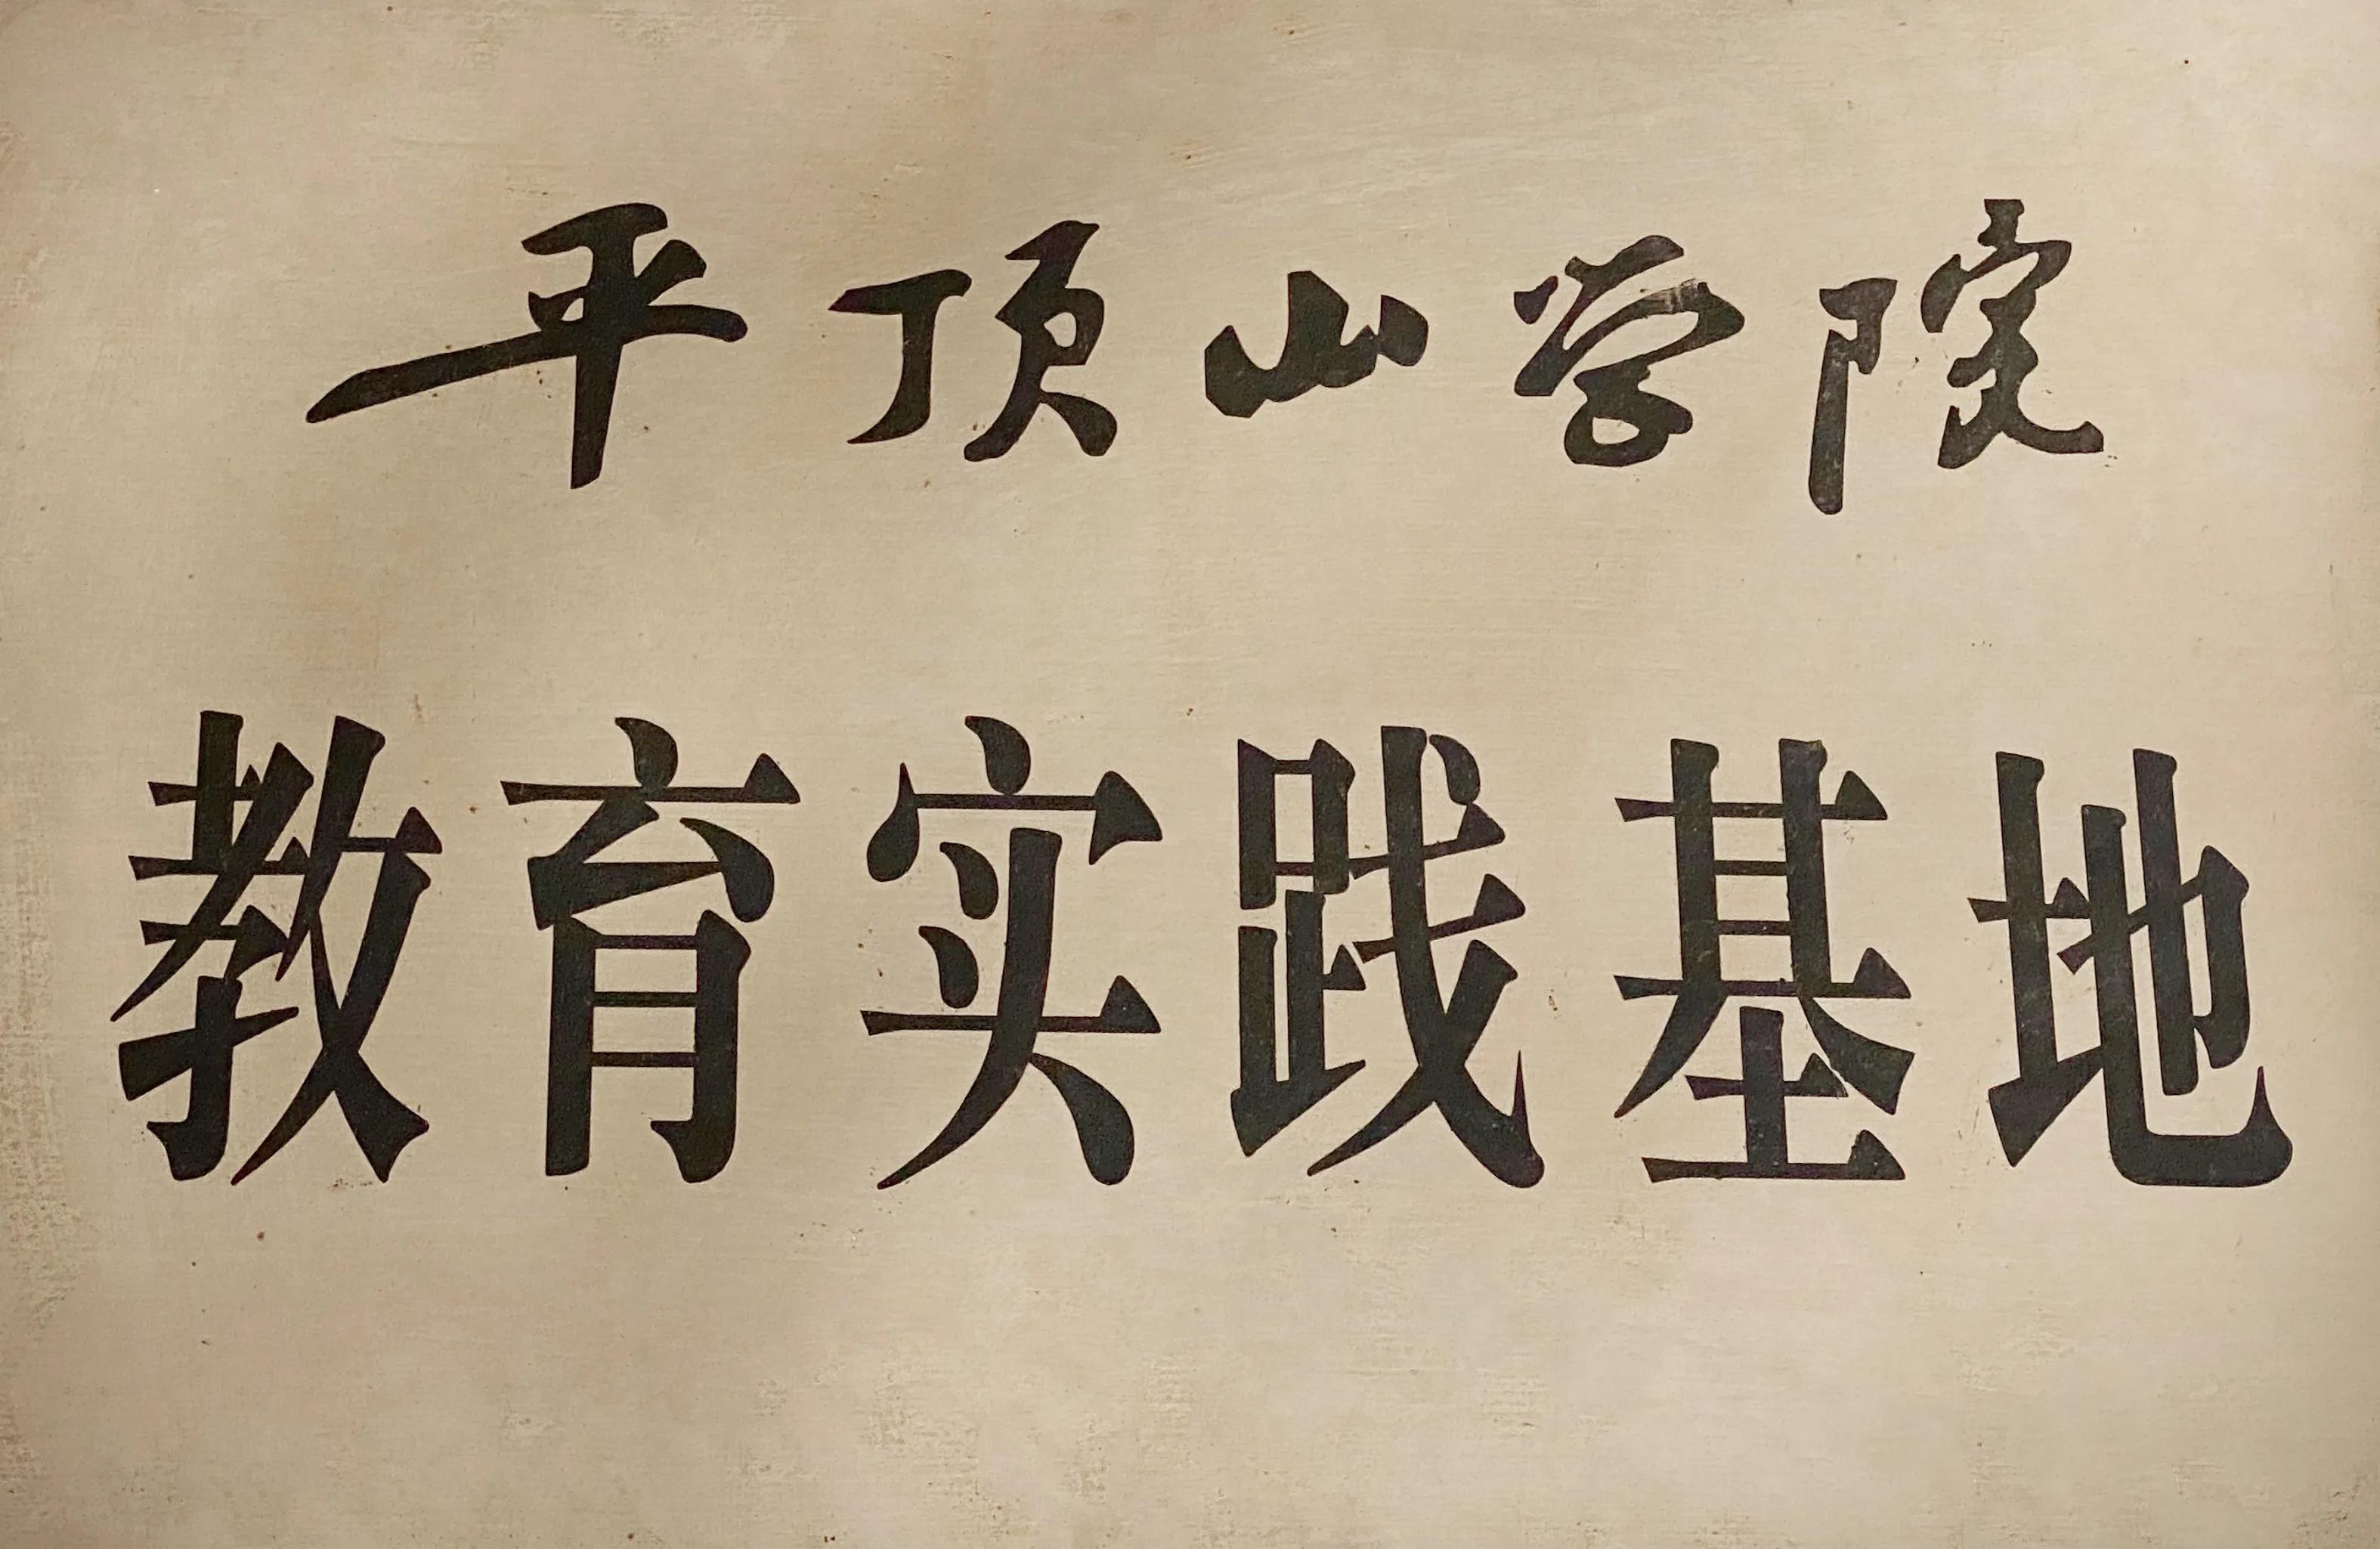 平顶山学院
教育实践基地